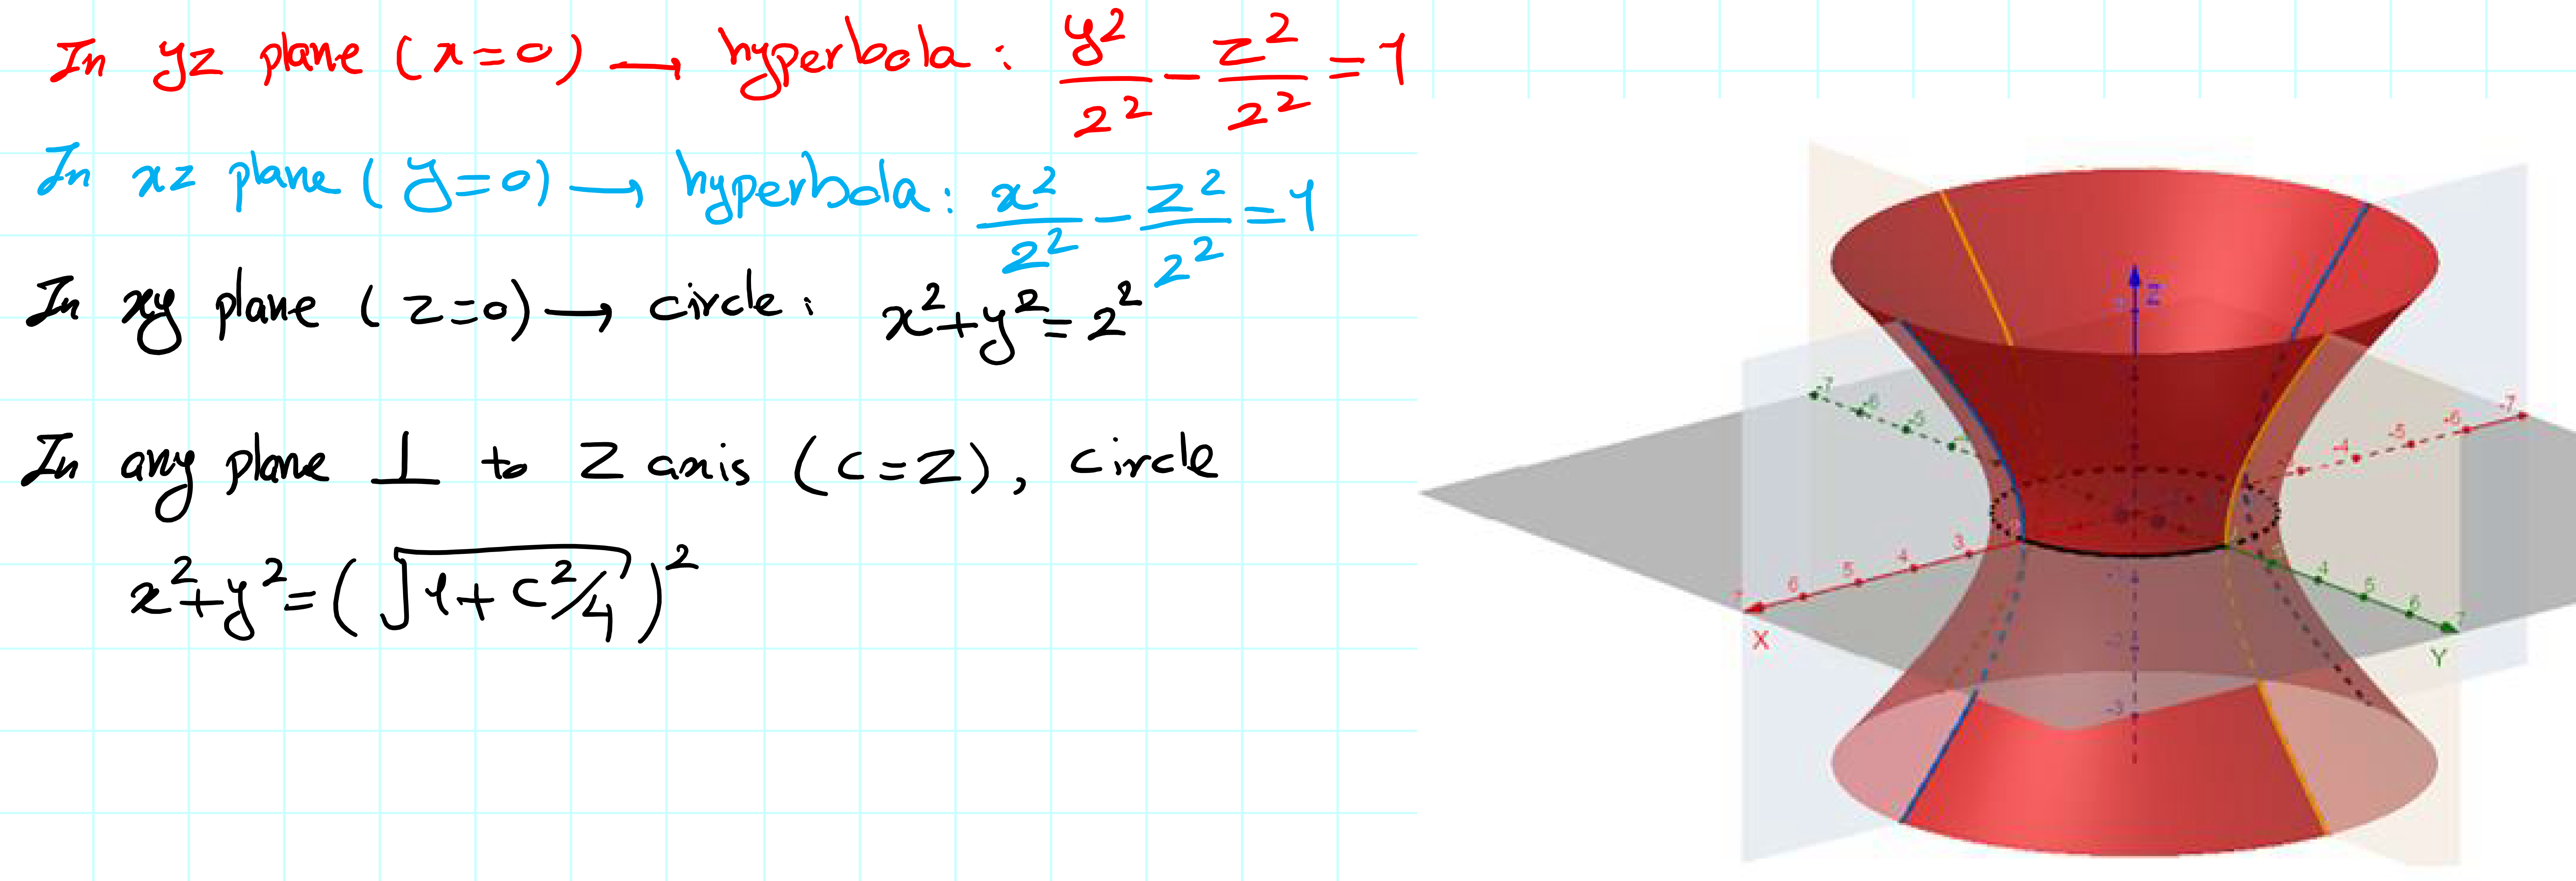 In yz plane (x=0) → hyperbola : y²/2² - z²/2² = 1
In xz plane (y=0) → hyperbola : x²/2² - z²/2² = 1
In xy plane (z=0) → circle : x²+y² = 2²
In any plane ⊥ to z axis (c=z), circle
x²+y² = (√(1+c²/4))²
z
-7 -6 -5
-4 -5 -6 -7
7 6 5 4 3
4 5 6 7
X
Y
-2
-3